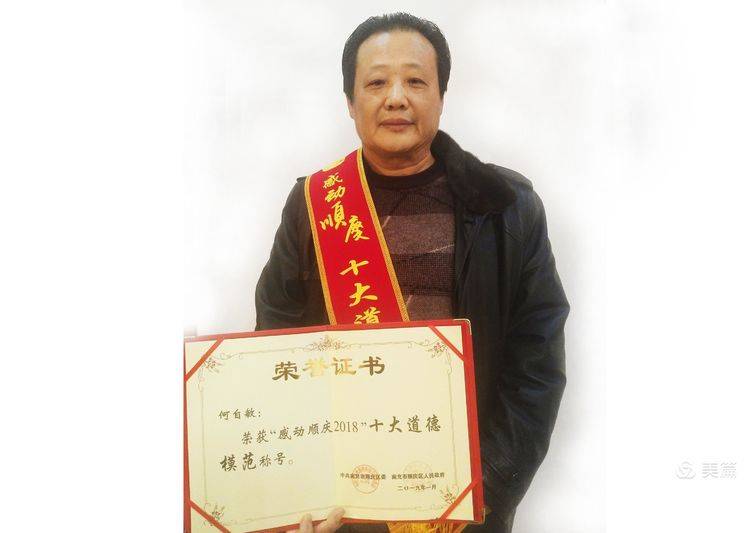 感动
順慶
十大道
荣誉证书
何自敏：
荣获“感动顺庆2018”十大道德
模范称号。
中共南充市顺庆区委 南充市顺庆区人民政府
二〇一九年一月
美篇